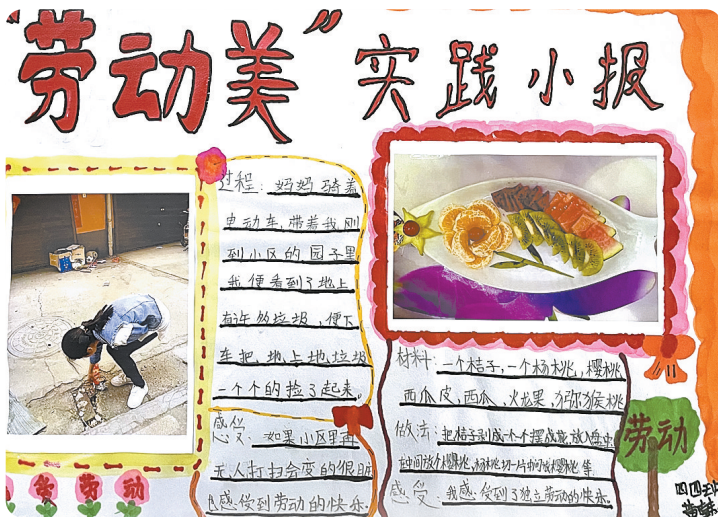 “劳动美”实践小报
过程：妈妈骑着
电动车，带着我，刚
到小区的园子里
我便看到了地上
有许多垃圾，便下
车把地上地垃圾
一个个的捡了起来。
感受：如果小区里再
无人打扫会变的很脏
感受到劳动的快乐。
劳动
材料：一个桔子，一个杨桃，樱桃
西瓜皮，西瓜、火龙果、猕猴桃
做法：把桔子剥成一个个摆成花，放入盘中
感受：我感受到了独立劳动的快乐。
劳动
四四班